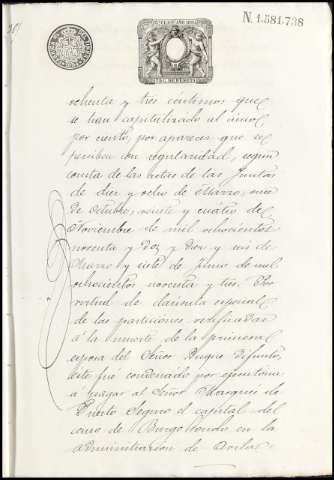 N. 1.581.738
ochenta y tres céntimos que
se han capitalizado al cinco
por ciento, por aparecer que se
perciben con regularidad, según
consta de las notas de las Juntas
de diez y ocho de Marzo, once
de Octubre, veinte y cuatro de
Noviembre de mil ochocientos
noventa y dos y diez y seis de
Marzo y siete de Junio de mil
ochocientos noventa y tres. Por
virtud de
de las particiones rectificadas
á la muerte de la primera
esposa del Señor Duque difunto,
éste fué condenado por ejecutoria
a pagar al Señor Marqués de
Puerto Seguro el capital del
censo de Burgohondo en la
administración de Avila